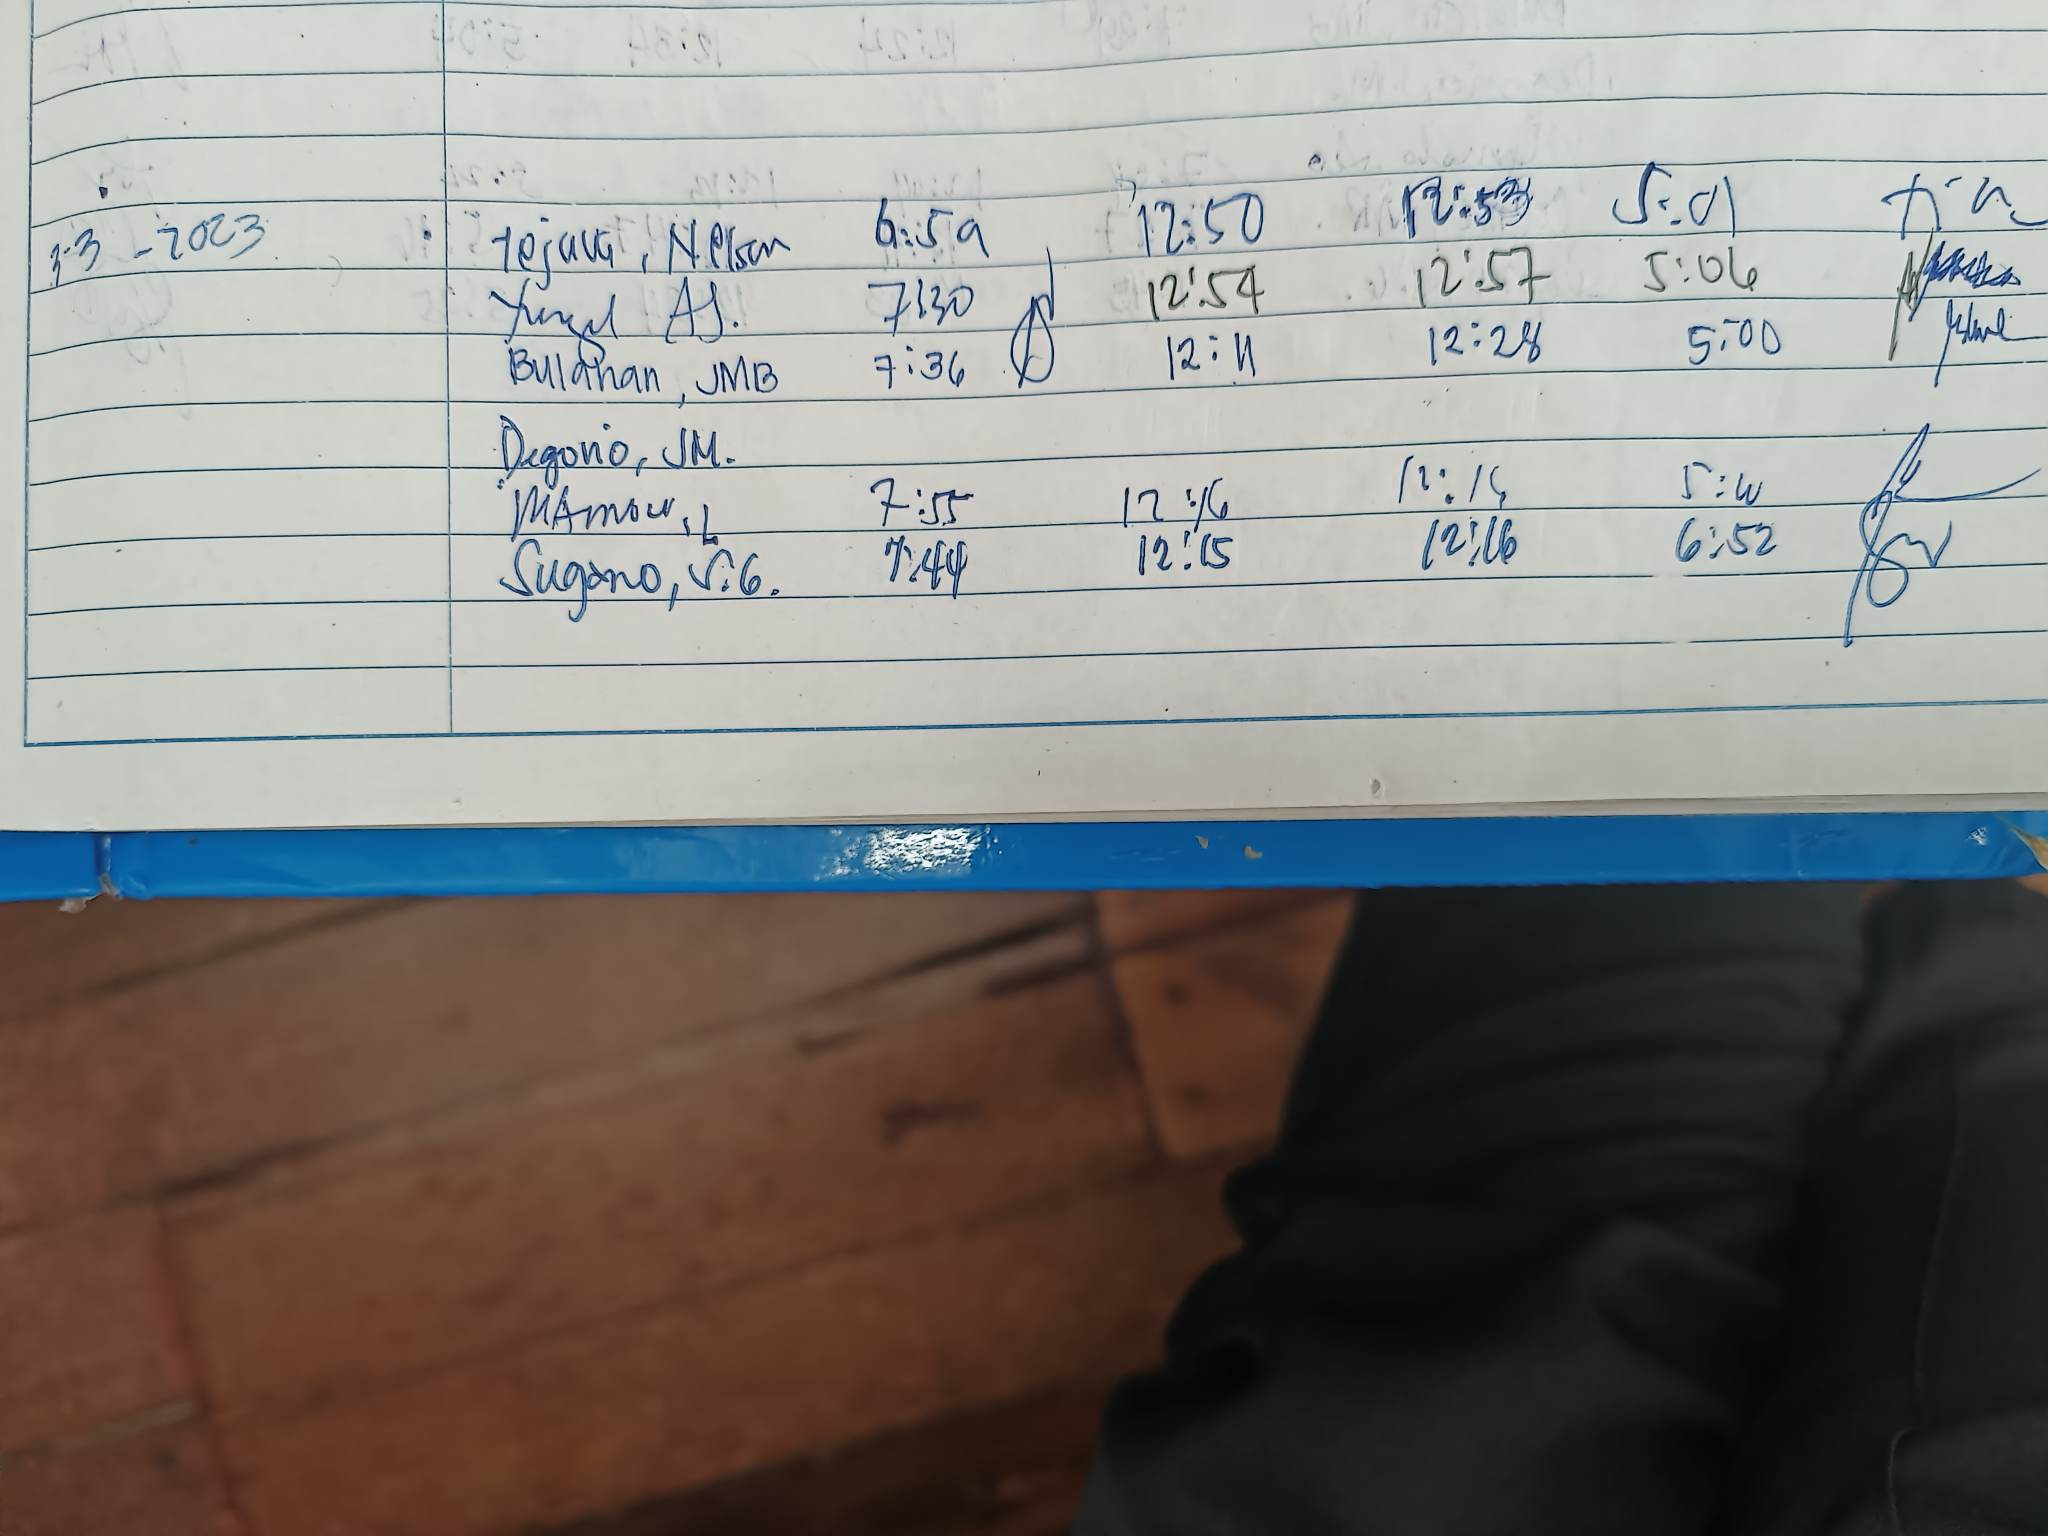 3-3-2023 Tejava, Nelson 6:59 12:50 12:53 5:01
AJ. 7:30 12:54 12:57 5:06
Bulahan, JMB 7:36 12:11 12:28 5:00
Degorio, JM.
7:55 12:16 5:10
Sugano, S.G. 7:44 12:15 12:16 6:52